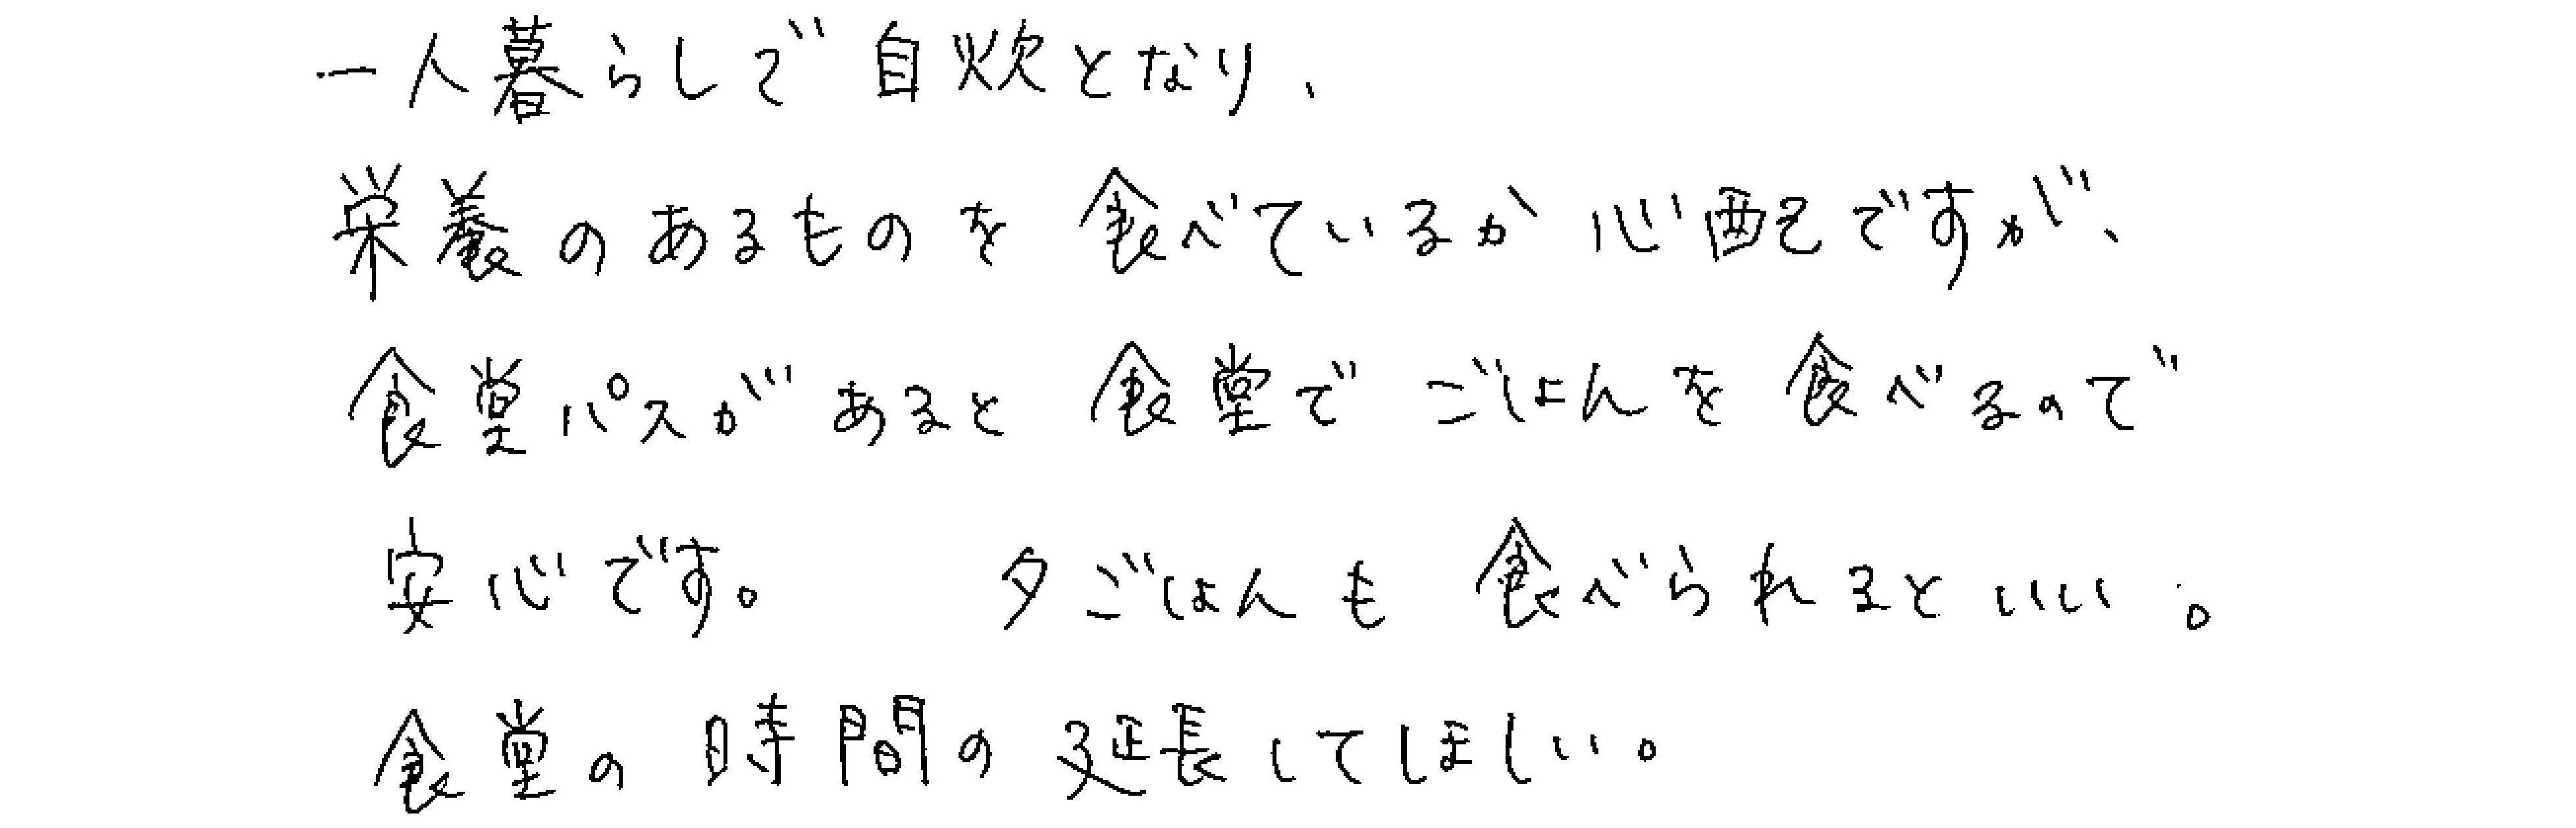 一人暮らしで自炊となり、
栄養のあるものを食べているか心配ですが、
食堂パスがあると食堂でごはんを食べるので
安心です。　夕ごはんも食べられるといい。
食堂の時間の延長してほしい。